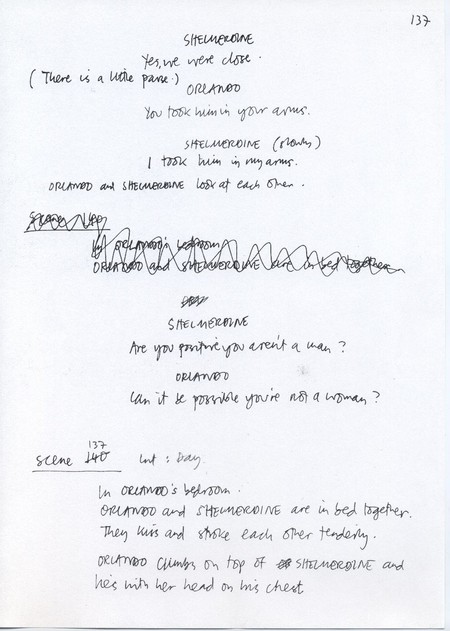 137
SHELMERDINE
Yes, we were close.
(There is a little pause.)
ORLANDO
You took him in your arms.
SHELMERDINE (slowly)
I took him in my arms.
ORLANDO and SHELMERDINE look at each other.
In ORLANDO's bedroom
ORLANDO and SHELMERDINE are in bed together
SHELMERDINE
Are you positive you aren't a man?
ORLANDO
Can it be possible you're not a woman?
137
Scene 140 Int : Day.
In ORLANDO's bedroom.
ORLANDO and SHELMERDINE are in bed together.
They kiss and stroke each other tenderly.
ORLANDO climbs on top of SHELMERDINE and
lies with her head on his chest